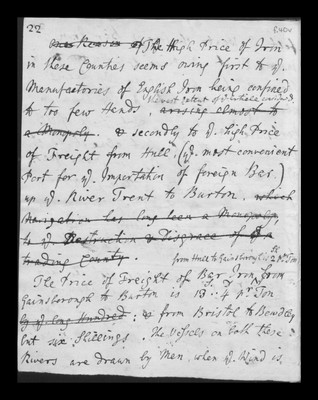 22
one Reason of The High Price of Iron
in these Counties seems owing first to yͤ.
Manufactories of English Iron being confin'd
to too few Hands, arising almost to
a Monopoly. & secondly to yͤ. high Price
of Freight from Hull, (yͤ. most convenient
Port for yͤ. Importation of foreign Bar.)
up yͤ. River Trent to Burton. which
Navigation has long been a Monopoly
to yͤ Destruction & Disgrace of a
trading County.
from Hull to Gainsborough is 2ˢ. pͬ. Ton
The Price of Freight of Bar Iron from
Gainsborough to Burton is 13ˢ: 4ᵈ pͬ. Ton
by yͤ long Hundred; & from Bristol to Bewdley
but six Shillings. The Vessels on both these
Rivers are drawn by Men, when yͤ. Wind is